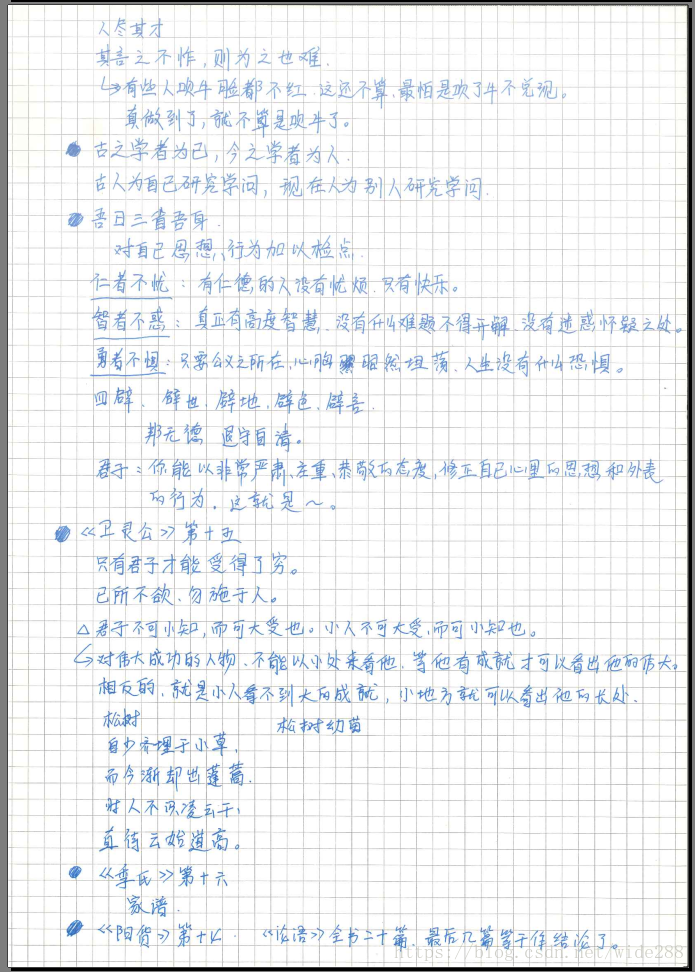 人尽其才
其言之不怍，则为之也难．
↳有些人吹牛脸都不红．这还不算、最怕是吹了牛不兑现。
真做到了，就不算是吹牛了。
● 古之学者为己，今之学者为人．
古人为自己研究学问，现在人为别人研究学问．
● 吾日三省吾身．
对自己思想、行为加以检点．
仁者不忧：有仁德的人没有忧烦．只有快乐。
智者不惑：真正有高度智慧，没有什么难题不得开解、没有迷惑怀疑之处。
勇者不惧：只要公义之所在，心胸昭然坦荡、人生没有什么恐惧。
四辟．辟世、辟地、辟色、辟言．
邦无德 退守自清。
君子：你能以非常严肃、庄重、恭敬的态度，修正自己心里的思想和外表
的行为．这就是～。
● 《卫灵公》第十五
只有君子才能受得了穷。
己所不欲、勿施于人。
△君子不可小知，而可大受也。小人不可大受，而可小知也。
↳对伟大成功的人物．不能以小处来看他．等他有成就才可以看出他的伟大。
相反的．就是小人看不到大的成就，小地方就可以看出他的长处．
松树 松树幼苗
自少齐埋于小草，
而今渐却出蓬蒿．
时人不识凌云干，
直待云始道高。
● 《季氏》第十六
家谱．
● 《阳货》第十七． 《论语》全书二十篇．最后几篇等于作结论了。
https://blog.csdn.net/wide288